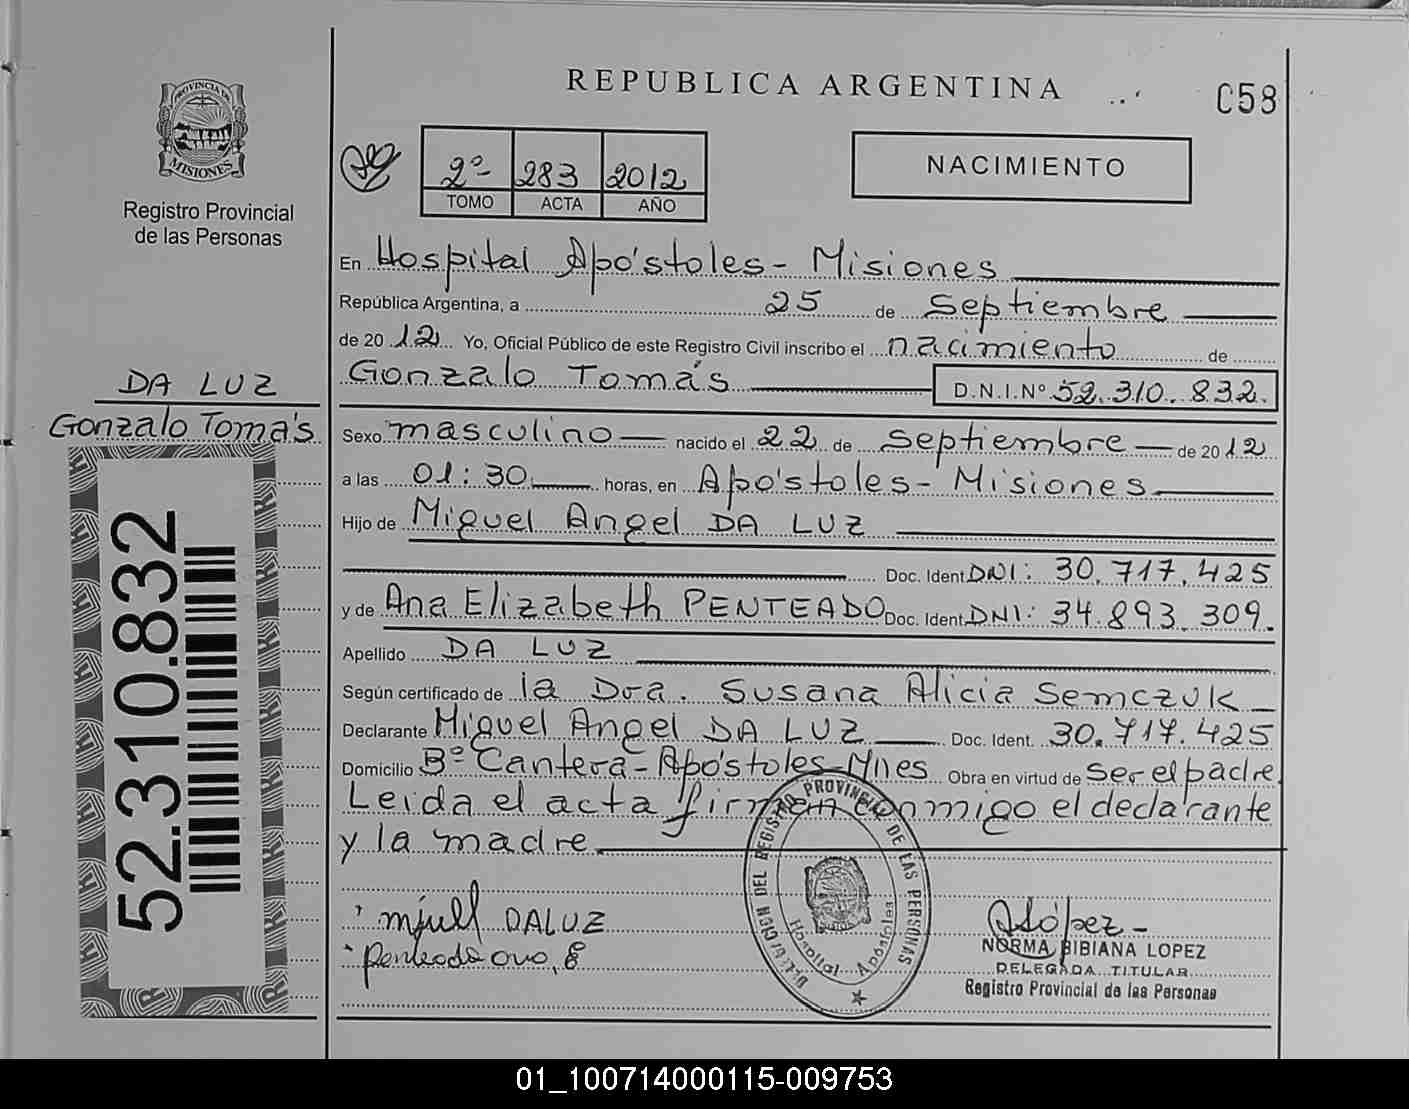 REPUBLICA ARGENTINA
C58
PROVINCIA DE
MISIONES
Registro Provincial
de las Personas
2º 283 2012
TOMO ACTA AÑO
NACIMIENTO
En Hospital Apóstoles - Misiones
República Argentina, a 25 de Septiembre
de 2012 Yo, Oficial Público de este Registro Civil inscribo el nacimiento de
Gonzalo Tomás D.N.I.Nº 52.310.832.
DA LUZ
Gonzalo Tomás
Sexo masculino nacido el 22 de Septiembre de 2012
a las 01:30 horas, en Apóstoles - Misiones
Hijo de Miguel Angel DA LUZ
Doc. Ident. DNI: 30.717.425
y de Ana Elizabeth PENTEADO Doc. Ident. DNI: 34.893.309.
Apellido DA LUZ
Según certificado de la Dra. Susana Alicia Semczuk
Declarante Miguel Angel DA LUZ Doc. Ident. 30.717.425
Domicilio Bº Cantera - Apóstoles - Mnes Obra en virtud de ser el padre
Leida el acta firman conmigo el declarante
y la madre
52.310.832
DELEGACION DEL REGISTRO PROVINCIAL DE LAS PERSONAS
Hospital Apóstoles
DALUZ
Penteado
López
NORMA BIBIANA LOPEZ
DELEGADA TITULAR
Registro Provincial de las Personas
01_100714000115-009753